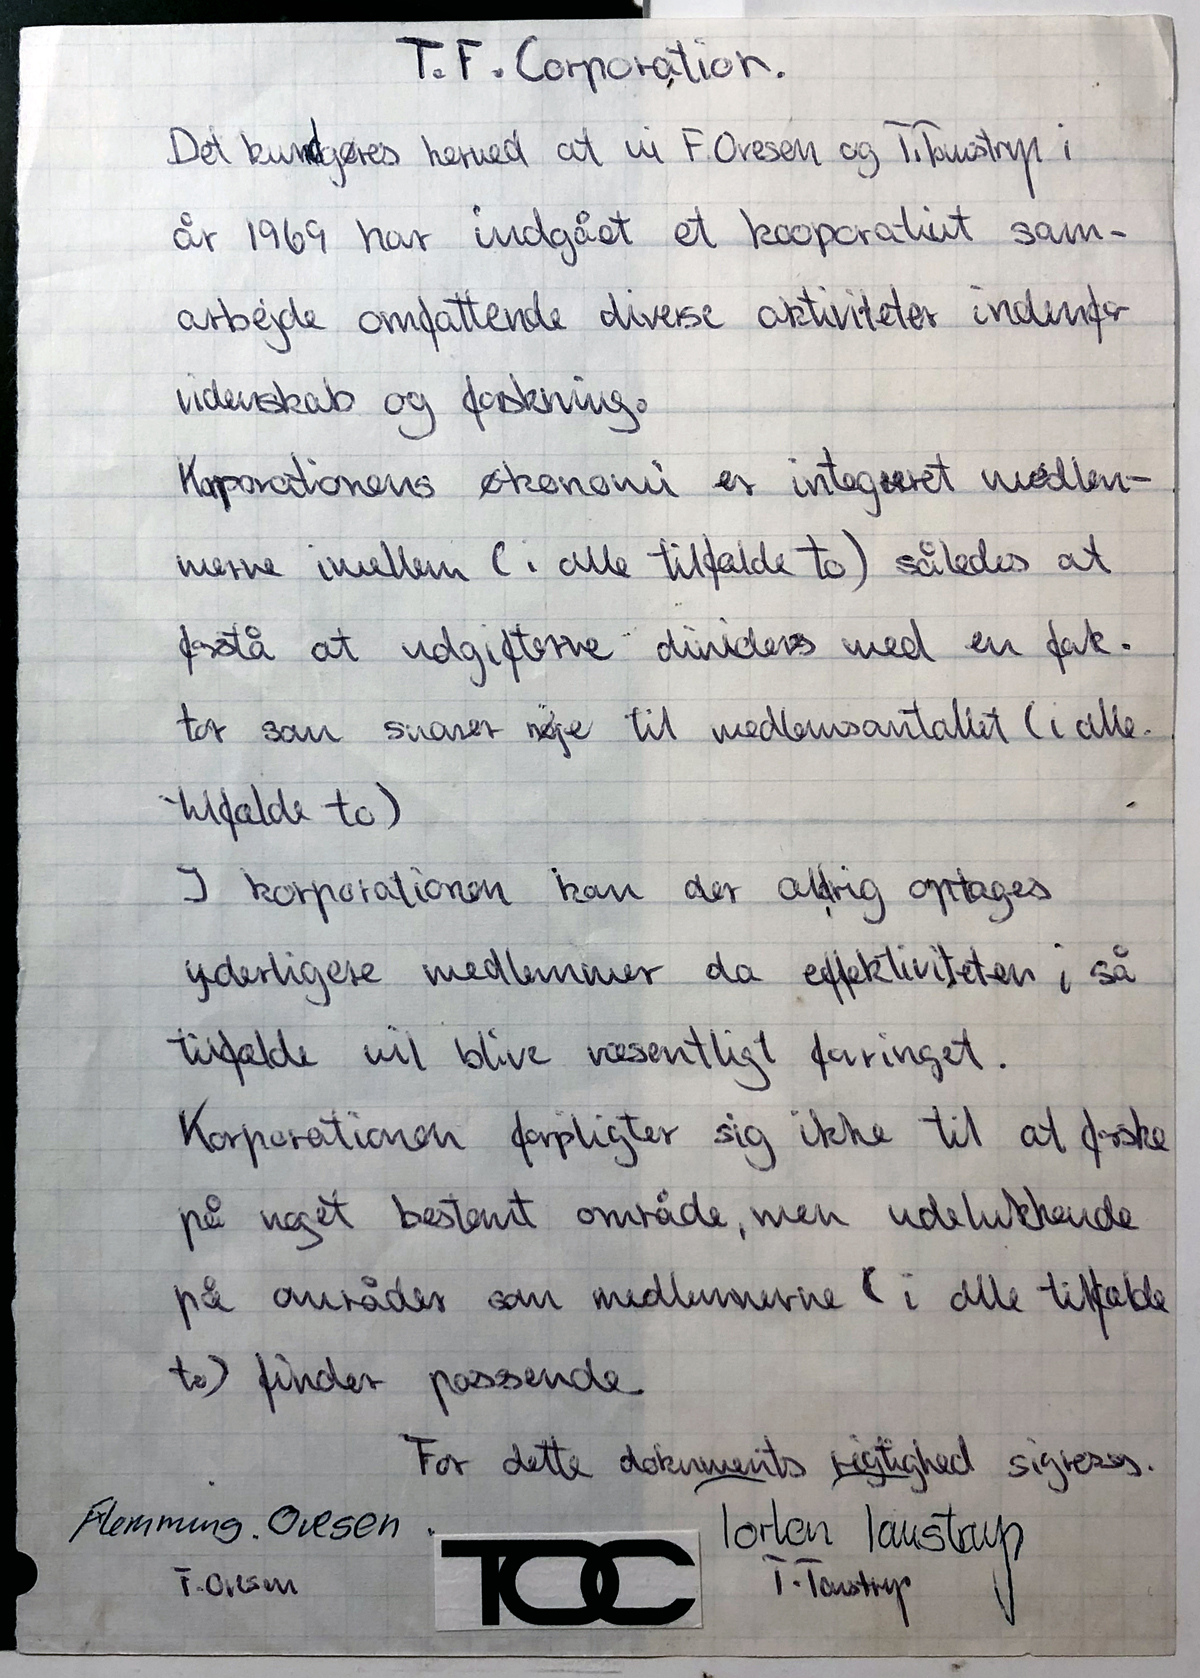 T.F. Corporation.
Det kundgøres herved at vi F.Ovesen og T.Taustrup i
år 1969 har indgået et kooperativt sam-
arbejde omfattende diverse aktiviteter indenfor
videnskab og forskning.
Korporationens økonomi er integreret medlem-
merne imellem (i alle tilfælde to) således at
forstå at udgifterne divideres med en fak-
tor som svarer nøje til medlemsantallet (i alle
tilfælde to)
I korporationen kan der aldrig optages
yderligere medlemmer da effektiviteten i så
tilfælde vil blive væsentligt foringet.
Korporationen forpligter sig ikke til at forske
på noget bestemt område, men udelukkende
på områder som medlemmerne (i alle tilfælde
to) finder passende.
For dette dokuments rigtighed sigreres.
Flemming. Ovesen. Torben Taustrup
F. Ovesen TOC T. Taustrup